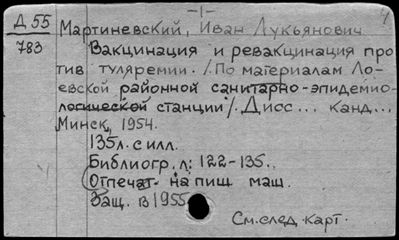 -1-
Д 55
783
Мартиневский, Иван Лукьянович
Вакцинация и ревакцинация про
тив туляремии. /По материалам Ло-
евской районной санитарно-эпидемио-
логической станции/. Дисс... канд...
Минск, 1954.
135л. с илл.
Библиогр. л: 122-135.
(Отпечат. на пиш. маш.
Защ. в 1955
См. след. карт.